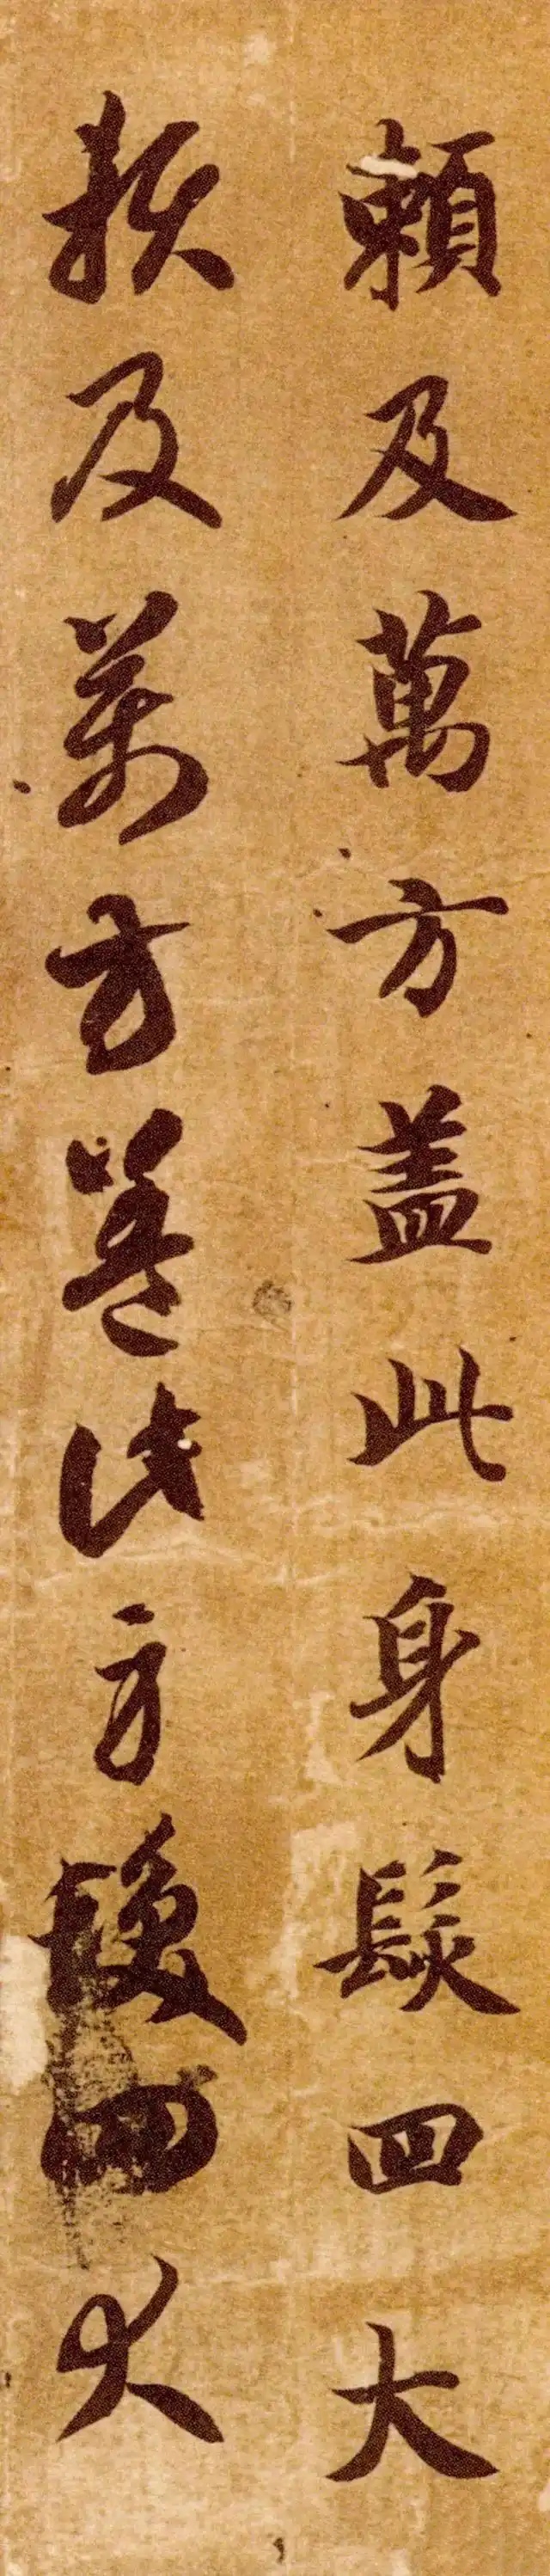 頼及萬方盖此身髮四大
賴及萬方蓋此身髮四大